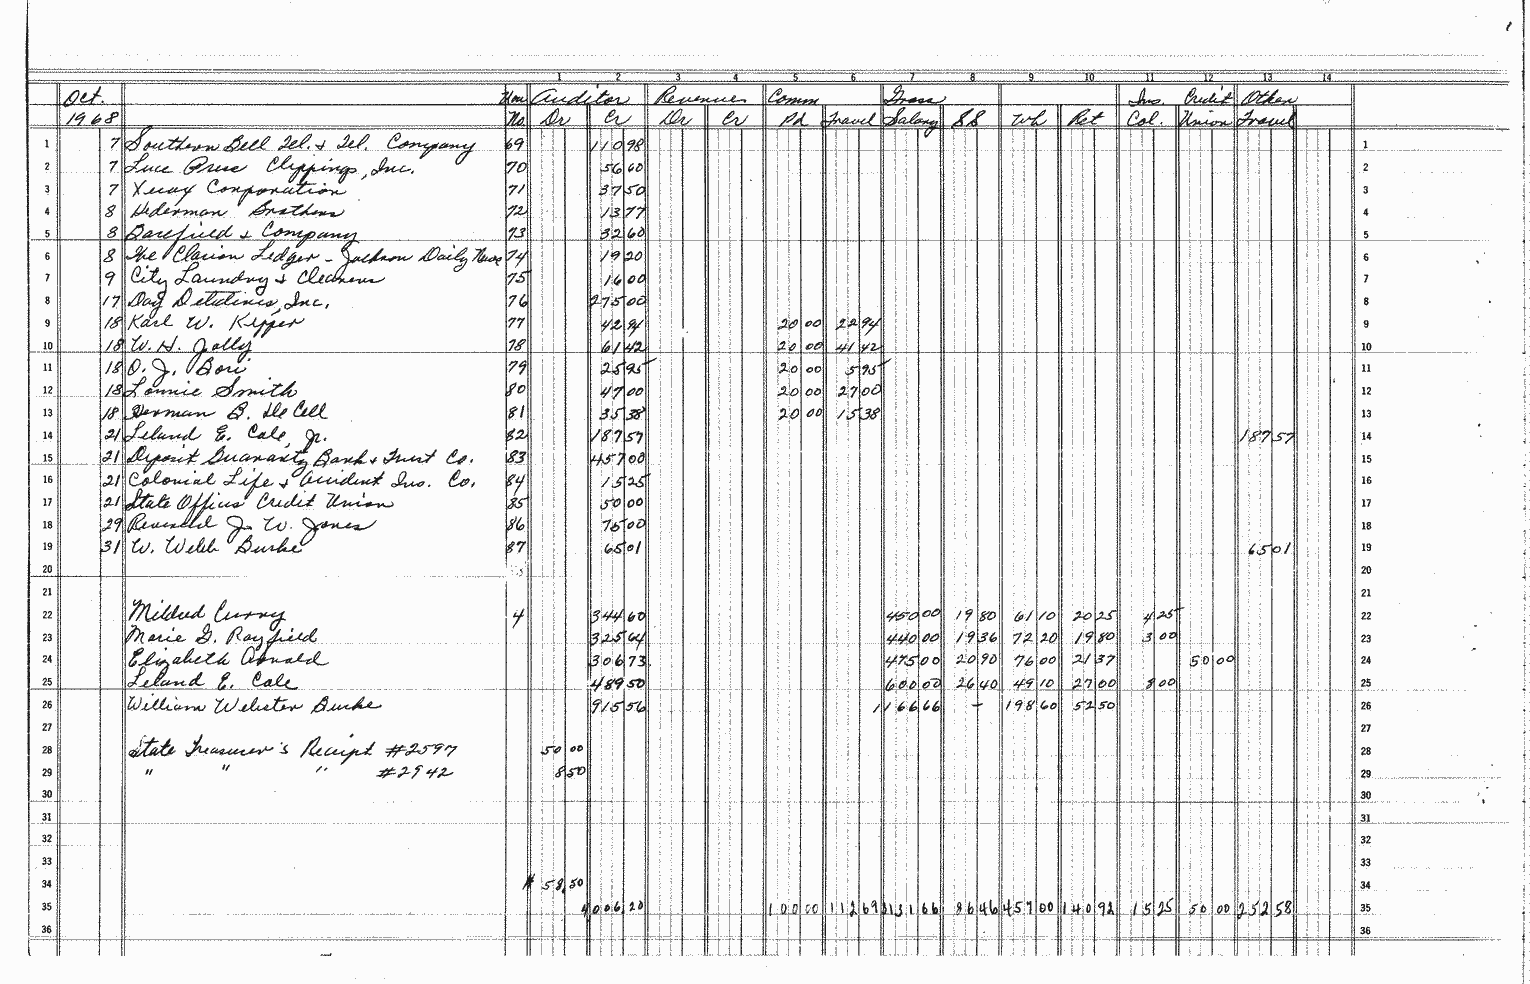 1 2 3 4 5 6 7 8 9 10 11 12 13 14
Oct. Auditor Revenues Comm Gross Ins. Credit Other
1968 No. Dr Cr Dr Cr Pd Travel Salary SS Wh Ret Col. Union Travel
1 7 Southern Bell Tel. & Tel. Company 69 110 98 1
2 7 Luce Press Clippings, Inc. 70 56 60 2
3 7 Xerox Corporation 71 37 50 3
4 8 Hederman Brothers 72 13 77 4
5 8 Barefield & Company 73 32 60 5
6 8 The Clarion Ledger - Jackson Daily News 74 19 20 6
7 9 City Laundry & Cleaners 75 16 00 7
8 17 Day Detectives, Inc. 76 275 00 8
9 18 Karl W. Kepper 77 42 94 20 00 22 94 9
10 18 W. H. Jolly 78 61 42 20 00 41 42 10
11 18 O. J. Bori 79 25 95 20 00 5 95 11
12 18 Lonnie Smith 80 47 00 20 00 27 00 12
13 18 Herman B. DeCell 81 35 38 20 00 15 38 13
14 21 Leland E. Cole, Jr. 82 187 57 187 57 14
15 21 Deposit Guaranty Bank & Trust Co. 83 457 00 15
16 21 Colonial Life & Accident Ins. Co. 84 15 25 16
17 21 State Offices Credit Union 85 50 00 17
18 29 Reverend J. W. Jones 86 75 00 18
19 31 W. Webb Burke 87 65 01 65 01 19
20 20
21 21
22 Mildred Curry 4 344 60 450 00 19 80 61 10 20 25 4 25 22
23 Marie G. Rayfield 325 64 440 00 19 36 72 20 19 80 3 00 23
24 Elizabeth Arnald 306 73 475 00 20 90 76 00 21 37 50 00 24
25 Leland E. Cole 489 50 600 00 26 40 49 10 27 00 8 00 25
26 William Webster Burke 915 56 1166 66 – 198 60 52 50 26
27 27
28 State Treasurer's Receipt #2597 50 00 28
29 " " " #2942 8 50 29
30 30
31 31
32 32
33 33
34 # 58.50 34
35 4006.20 100 00 112 69 3131 66 86 46 457 00 140 92 15 25 50 00 252 58 35
36 36